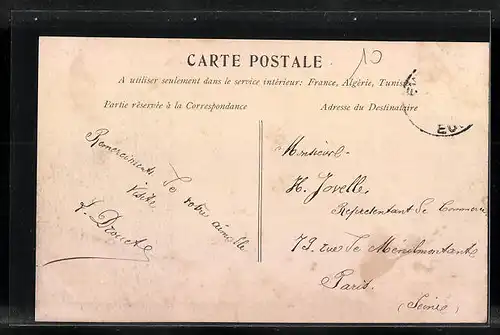 CARTE POSTALE
10
A utiliser seulement dans le service intérieur: France, Algérie, Tunisie
Partie réservée à la Correspondance
Adresse du Destinataire
Remerciements de votre aimable
visite
Monsieur
H. Jovelle
Représentant de Commerce
79 rue de Ménilmontant
Paris
(Seine)